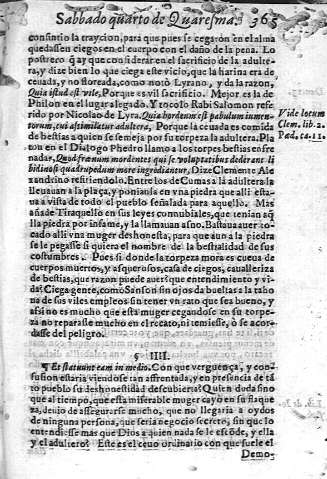 Sabbado quarto de Quaresma. 365
consintio la traycion, para que pues se cegarõ en el alma
quedassen ciegos en el cuerpo con el daño de la pena. Lo
postrero q̃ ay que considerar en el sacrificio de la adulte-
ra, y dize bien lo que ciega este vicio, que la harina era de
ceuada, y no floreada, como notò Lyrano, y da la razon,
Quia istud est vile, Porque es vil sacrificio. Mejor es la de
Philon en el lugar alegado. Y tocolo Rabi Salomon refe-
rido por Nicolao de Lyra. Quia hordeum est pabulum iumen-
torum, cui assimilatur adultera, Porque la ceuada es comida
de bestias a quien se semeja por su torpeza la adultera. Pla
ton en el Dialogo Phedro llamo a los torpes bestias en fre
nadas, Quod frænum mordentes qui se voluptatibus dederant li
bidinosi quadrupedum more ingrediantur, Dize Clemente Ale
xandrino refitiendolo. Entre los de Cumas a la adultera la
lleuauan a la plaça, y poniausa en vna piedra que alli esta-
ua a vista de todo el pueblo señalada para aquello. Mas
añade Tiraquello en sus leyes connubiales, que tenian aq̃
lla piedra por infame, y la llamauan asno. Bastaua auer to
cado alli vna muger deshonesta, para que aun a la piedra
se le pegasse si quiera el nombre de la bestialidad de sus
costumbres. Pues si donde la torpeza mora es cueua de
cuerpos muertos, y asquerosos, casa de ciegos, caualleriza
de bestias, que razon puede auer que entendimiento y vi-
da? Ciega gente, como Sanson sin ojos da bueltas a la taho
na de sus viles empleos sin tener vn rato que sea bueno, y
assi no es mucho que esta muger cegandose en su torpe-
za no reparasse mucho en el recato, ni temiesse, ò se acor-
dasse del peligro.
§ IIII.
¶ Et statuunt eam in medio. Con que verguença, y con-
fusion estaria viendose tan affrentada, y en presencia de tã
to pueblo su deshonestidad descubierta? Quien duda sino
que al tiempo, que esta miserable muger cayò en su flaque
za, deuio de assegurarse mucho, que no llegaria a oydos
de ninguna persona, que seria negocio secreto, sin que lo
entendiesse mas que Dios a quien nada se escõde, y ella
y el adultero? Este es el ceuo ordinario con que suele el
Demo-
Vide locum
Clem. lib. 2.
Pad. ca. 11.